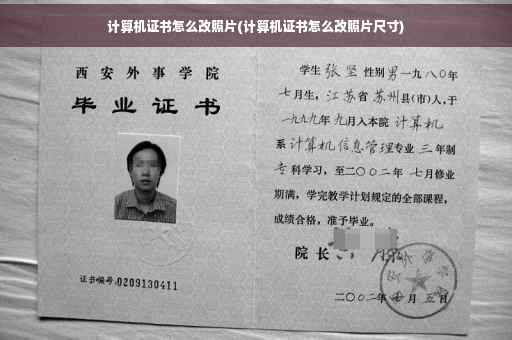 计算机证书怎么改照片(计算机证书怎么改照片尺寸)
西安外事学院
毕业证书
证书编号:0209130411
学生张坚性别男一九八〇年
七月生,江苏省苏州县(市)人,于
一九九九年九月入本院计算机
系计算机信息管理专业三年制
专科学习,至二〇〇二年七月修业
期满,学完教学计划规定的全部课程,
成绩合格,准予毕业。
院长
二〇〇二年 月五日